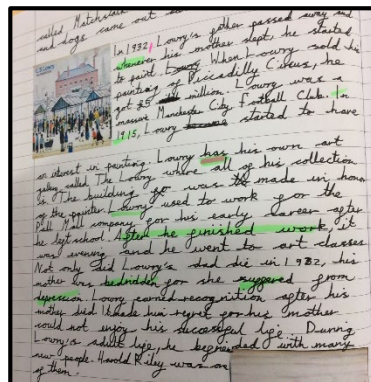 called Matchstick
and dogs came out
In 1932, Lowry's father passed away and
whenever his mother slept, he started
to paint. Lowry When Lowry sold his
painting of Piccadilly Circus, he
got $5 million. Lowry was a
massive Manchester City Football Club. In
1915, Lowry started to have
an interest in painting. Lowry has his own art
gallery called The Lowry where all of his collection
is. The building was made in honor
of the painter. Lowry used to work for the
Pall Mall company for his early career after
he left school. After he finished work, it
was evening and he went to art classes.
Not only did Lowry's dad die in 1932, his
mother was bedridden for she suffered from
depression. Lowry earned recognition after his
mother died. It made him regret for his mother
could not enjoy his successful life. During
Lowry's adult life, he befriended with many
new people. Harold Riley was one
of them.